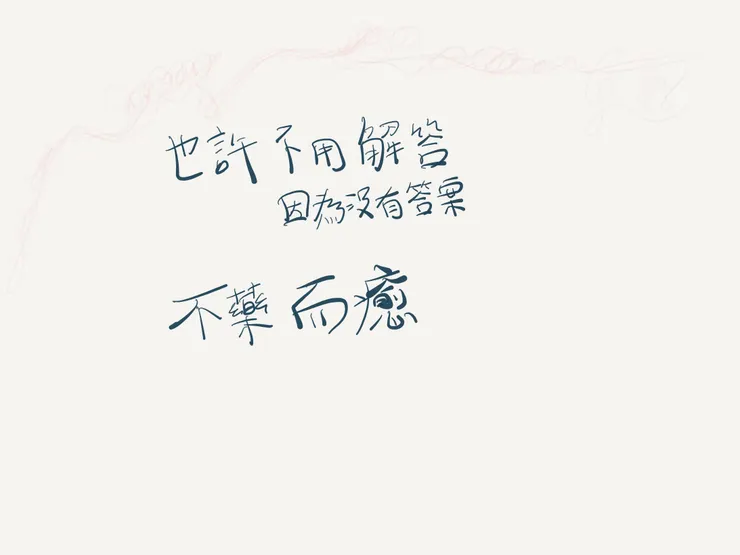 也許不用解答
因為沒有答案
不藥而癒